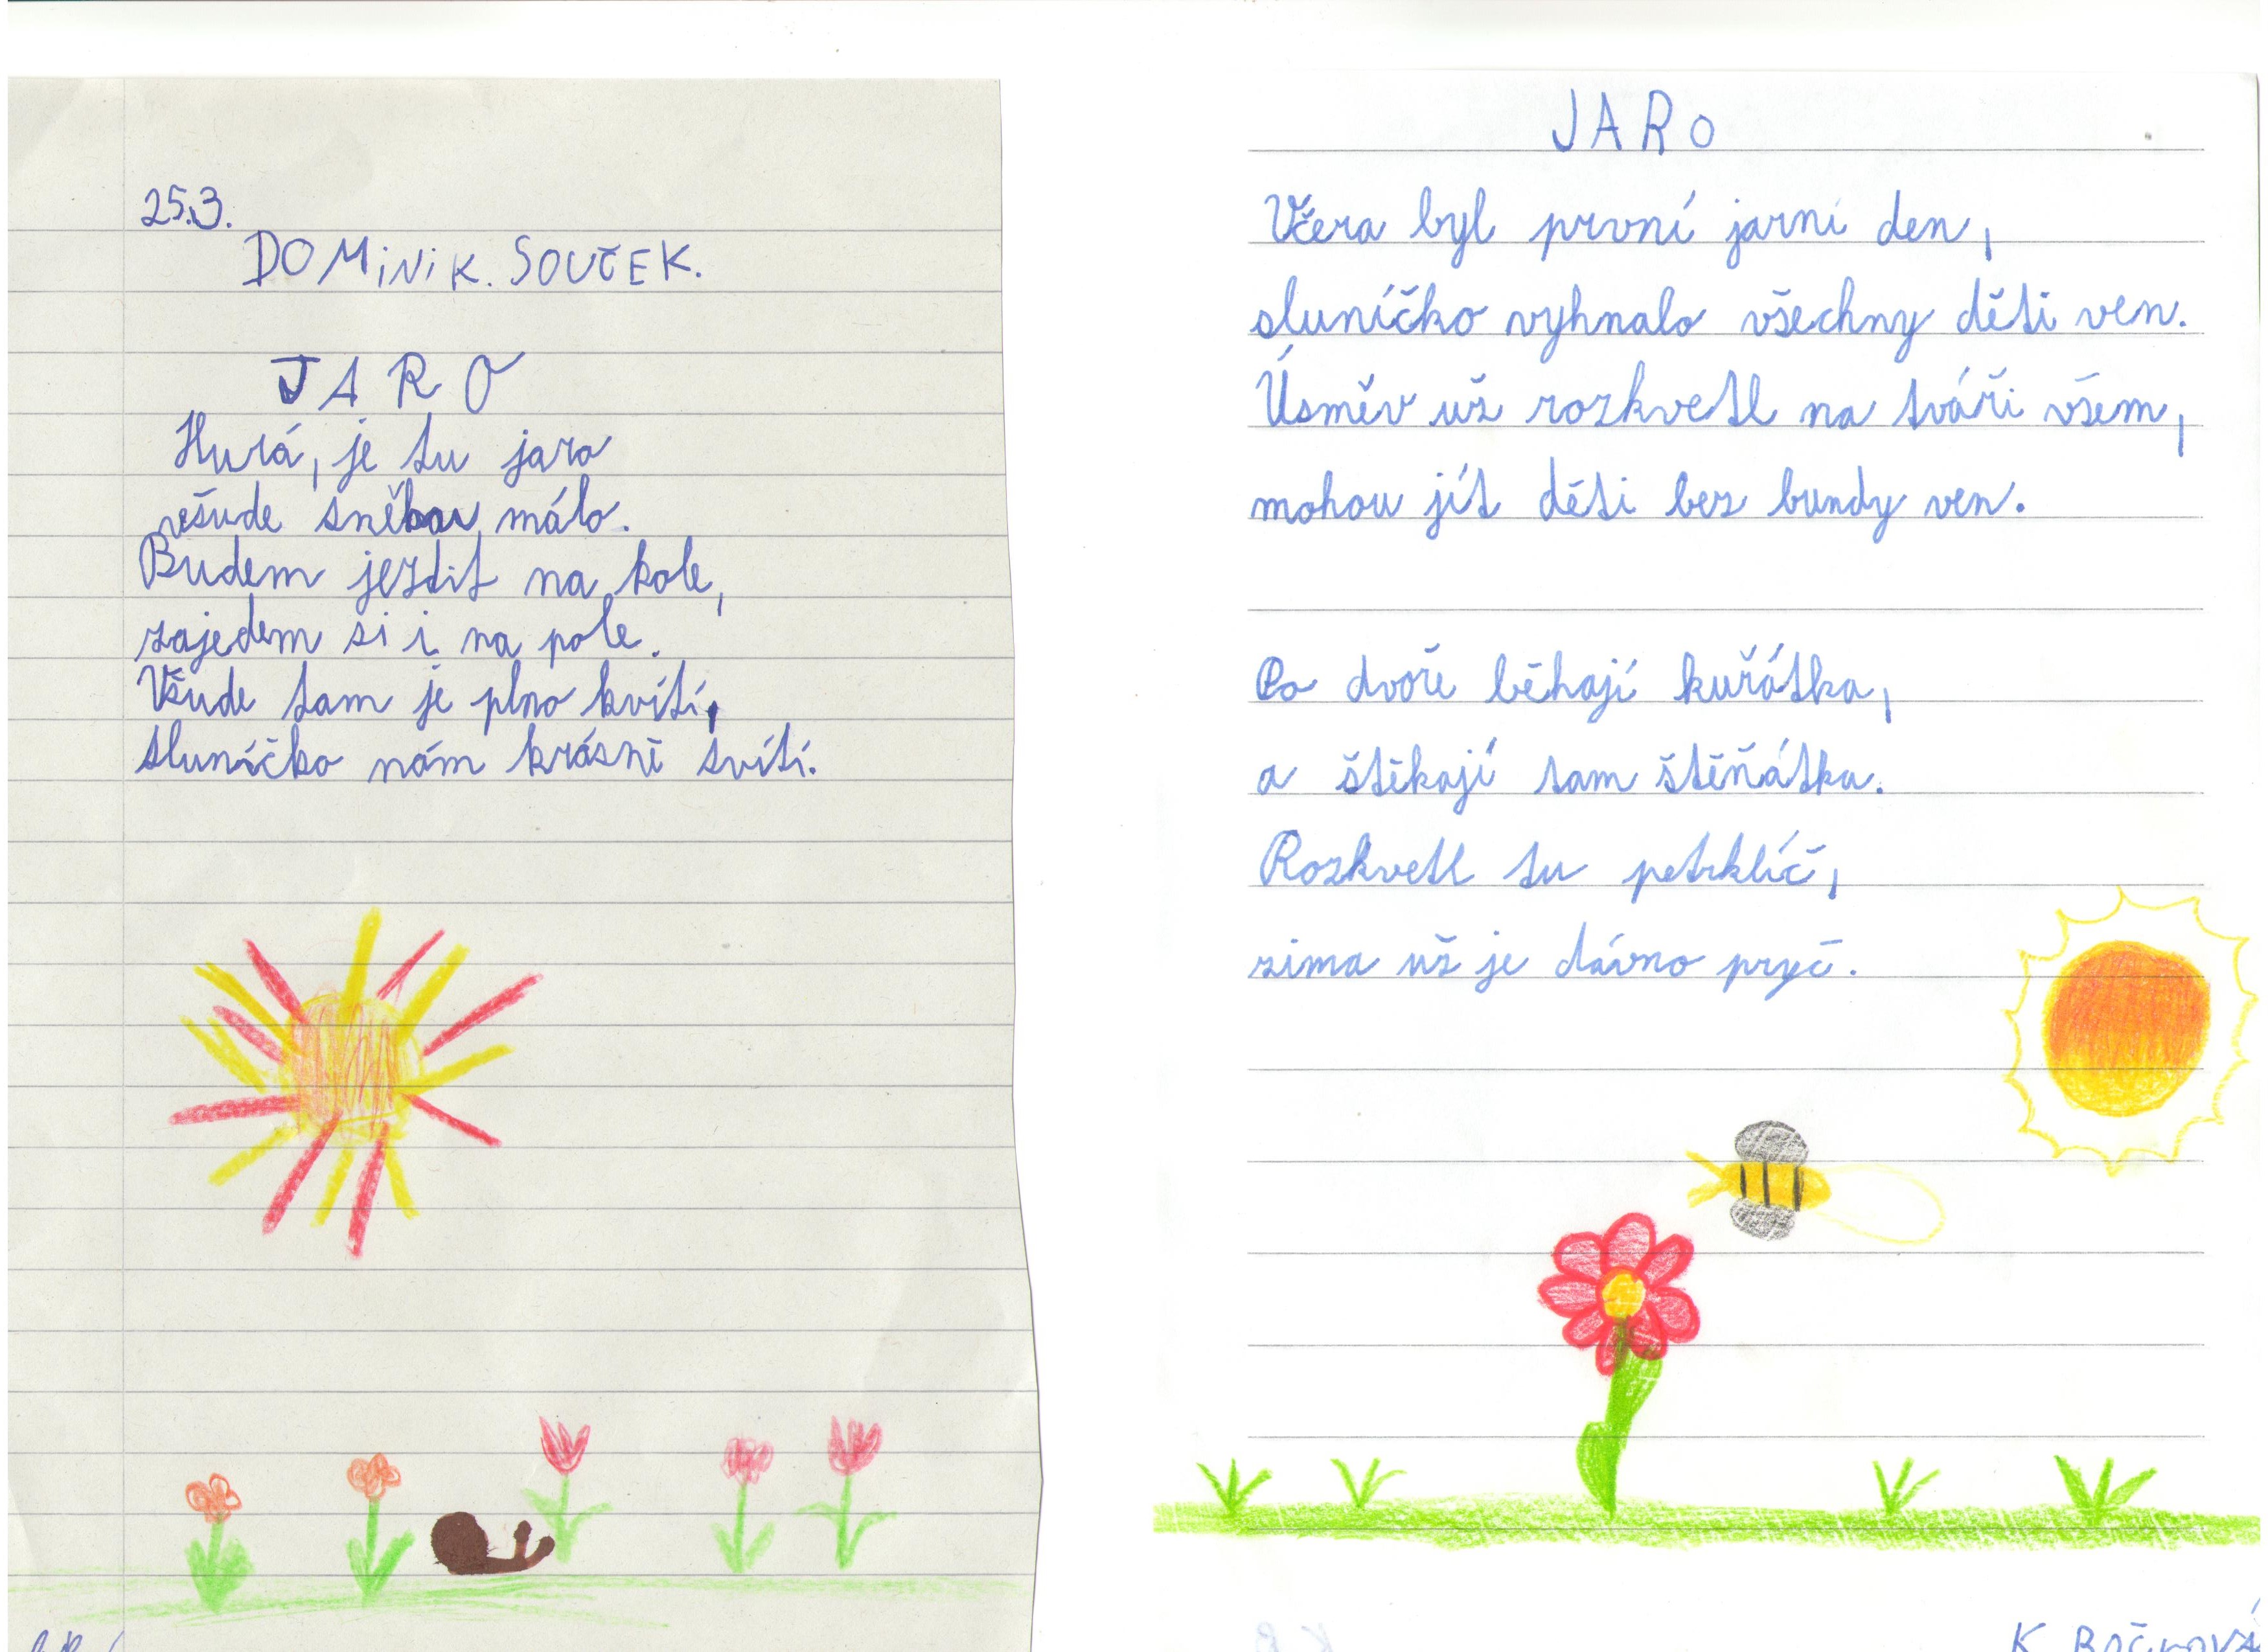 25.3.
DOMiNiK. SOUČEK.
JARO
Hurá, je tu jaro
všude sněhu málo.
Budem jezdit na kole,
zajedem si i na pole.
Všude tam je plno kvítí,
sluníčko nám krásně svítí.
JARo
Včera byl první jarní den,
sluníčko vyhnalo všechny děti ven.
Úsměv už rozkvetl na tváři všem,
mohou jít děti bez bundy ven.
Po dvoře běhají kuřátka,
a štěkají tam štěňátka.
Rozkvetl tu petrklíč,
zima už je dávno pryč.
K